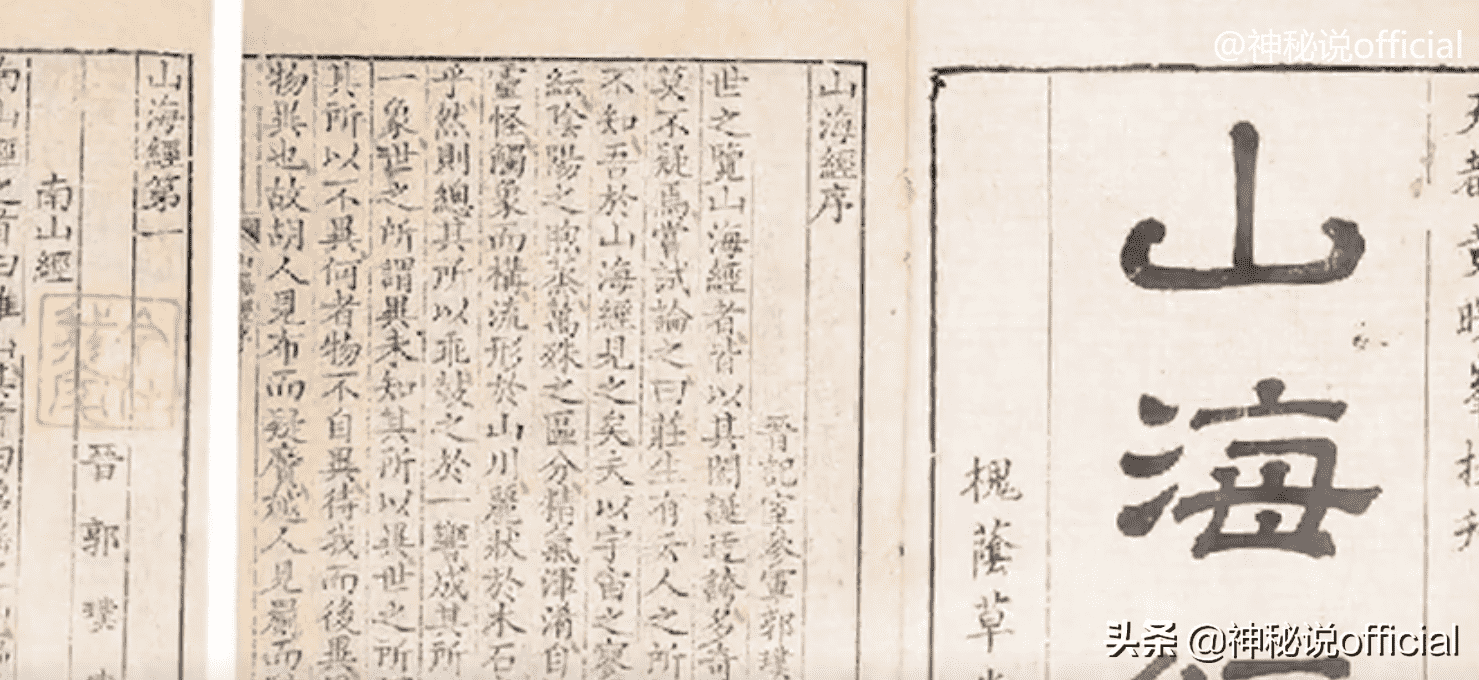 @神秘说official
山海
槐蔭草
山海經序
晉記室參軍郭璞
世之覽山海經者皆以其閎誕迂誇多奇
莫不疑焉嘗試論之曰莊生有云人之所
不知吾於山海經見之矣夫以宇宙之寥
紜陰陽之煦蒸萬殊之區分精氣渾淆自
靈怪觸象而構流形於山川麗狀於木石
乎然則總其所以乖鼓之於一響成其所
一象世之所謂異未知其所以異世之所
其所以不異何者物不自異待我而後異
物異也故胡人見布而疑黂越人見罽而
山海經第一
晉郭璞
南山經
南山經之首曰
头条 @神秘说official